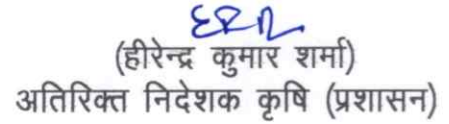 (हीरेन्द्र कुमार शर्मा)
अतिरिक्त निदेशक कृषि (प्रशासन)